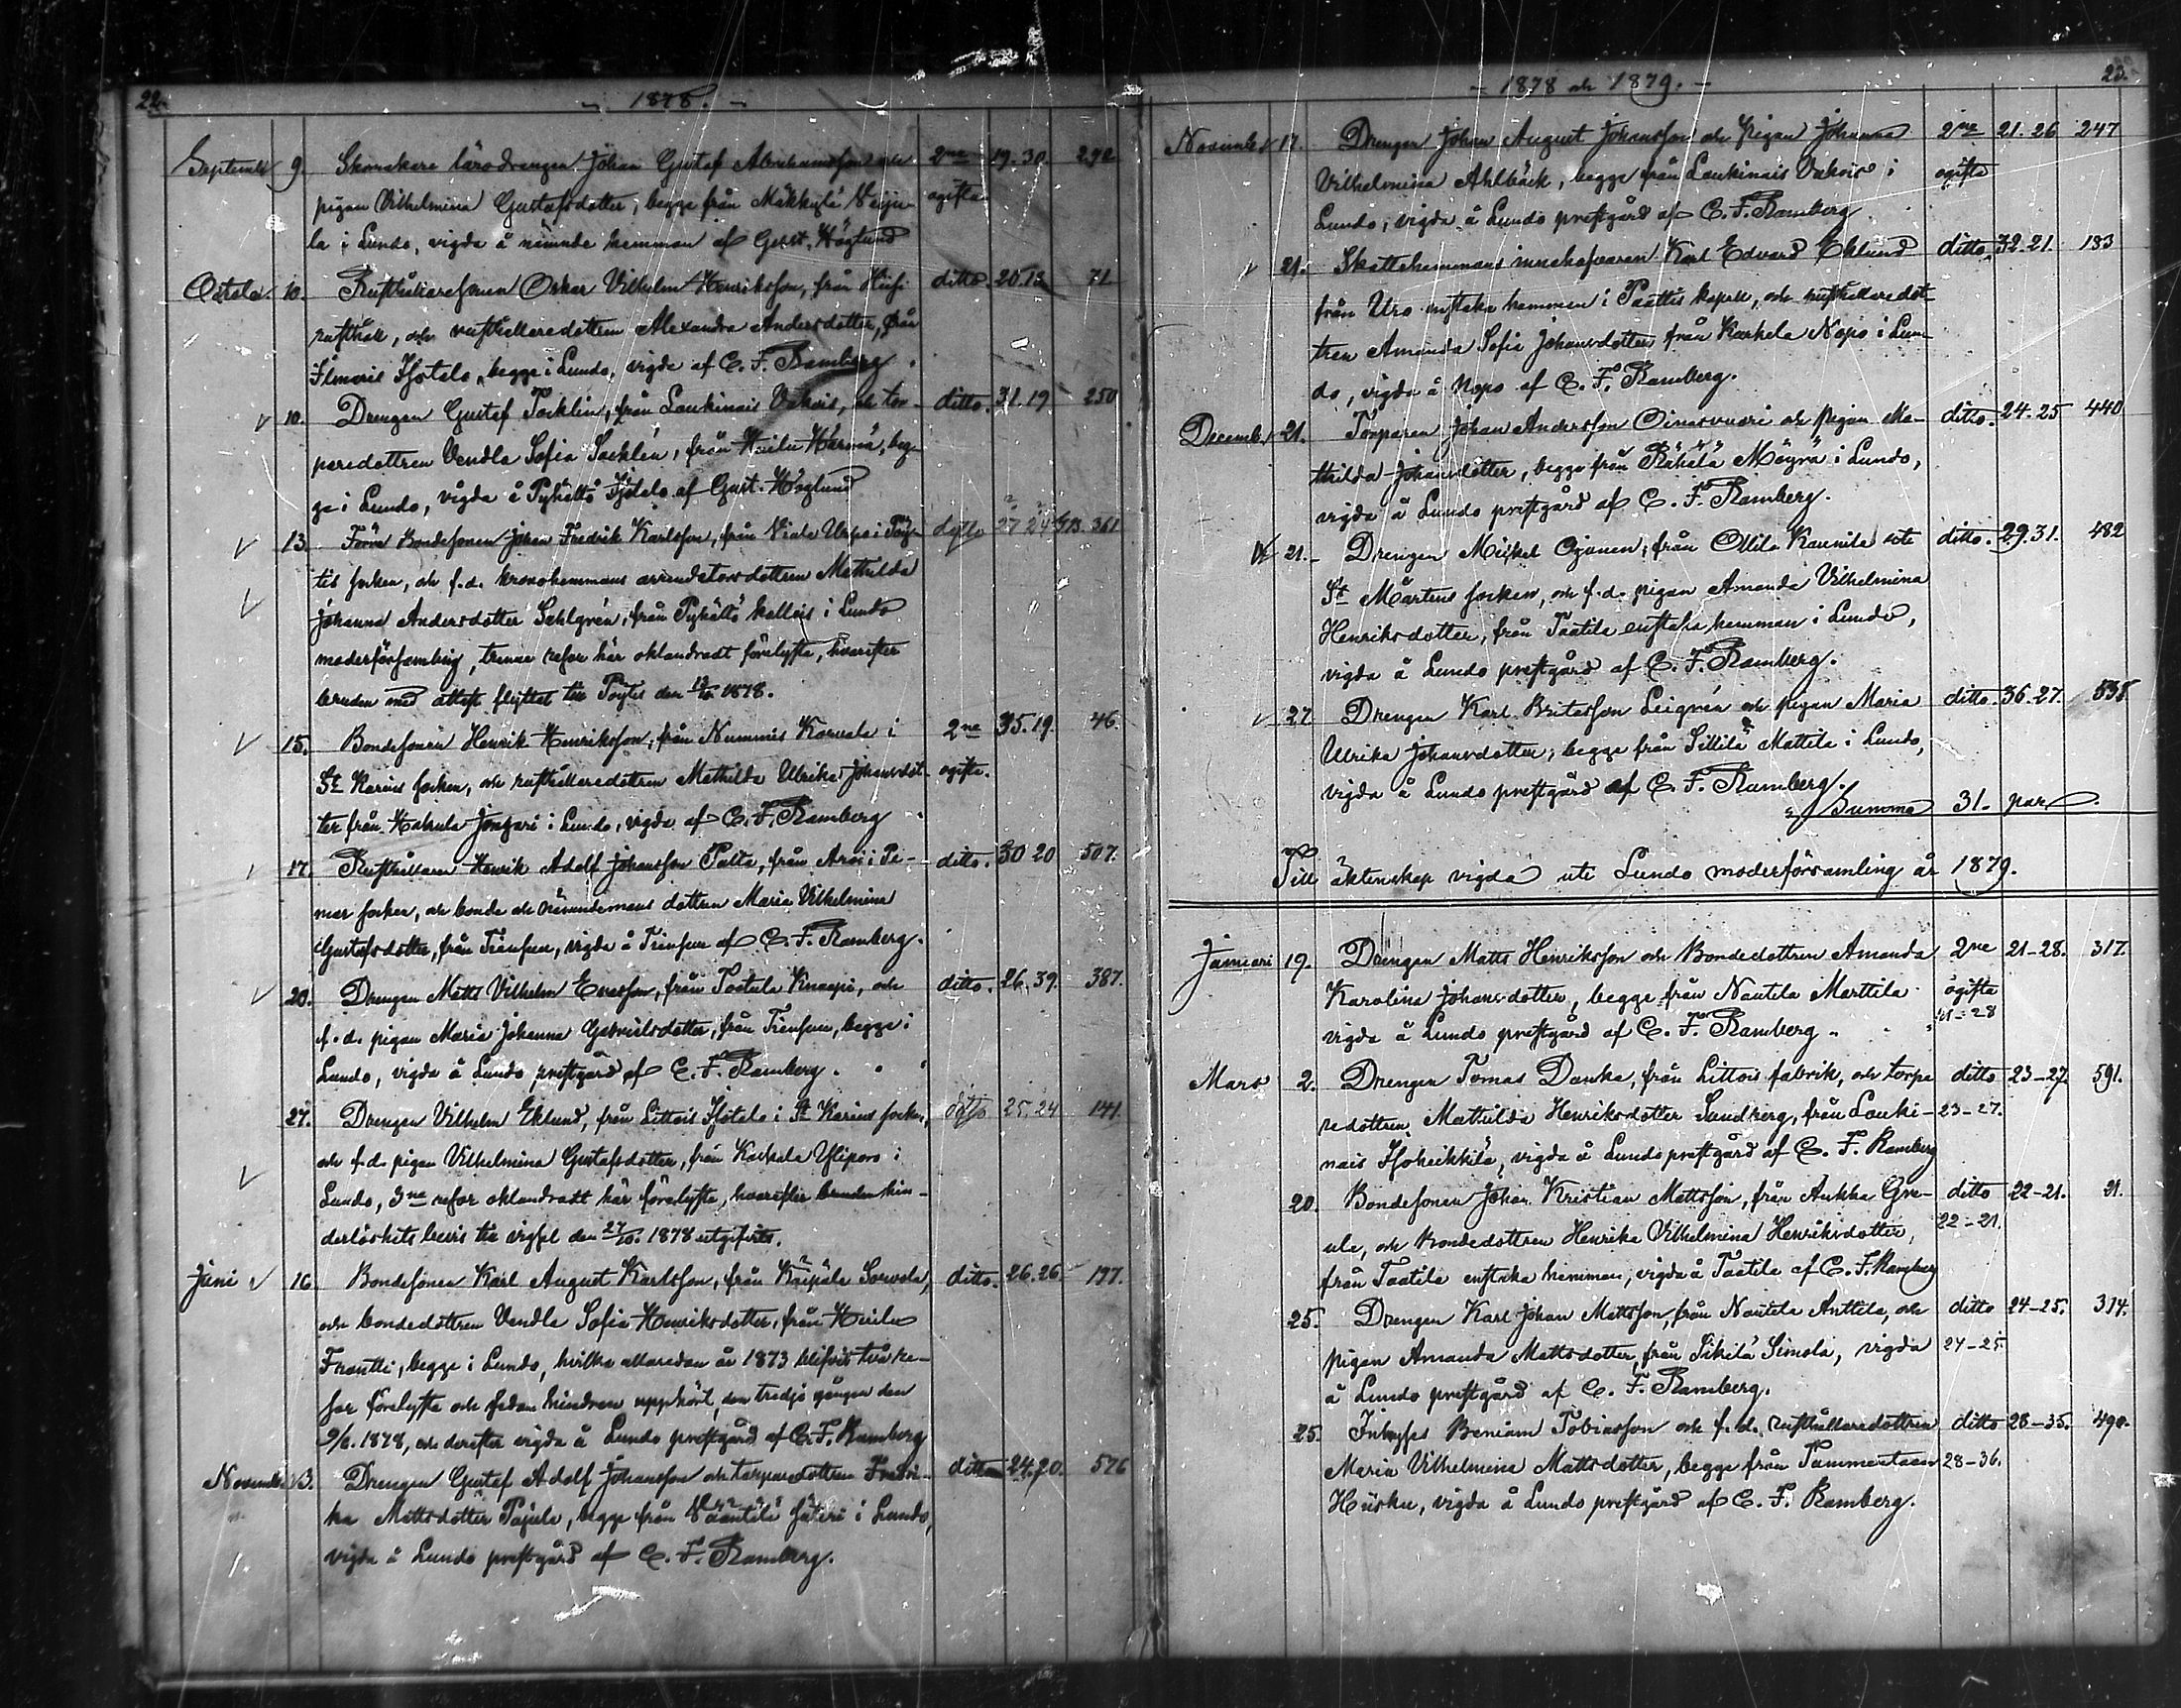 22.
1878.
September 9. Skomakare lärodrengen Johan Gustaf Abrahamsson och 2ne 19.30. 292
pigan Vilhelmina Gustafsdotter, begge från Mäkkylä Veiju- ogifta
la i Lundo, vigda å nämnde hemman af Gust. Höglund
October 10. Rusthållaresonen Oskar Vilhelm Henriksson, från ditto. 20.18 71
rusthåll, och rusthållaredottren Alexandra Andersdotter, från
Ilmaris Isotalo, begge i Lundo, vigda af C. F. Ramberg
10. Drengen Gustaf Tacklin, från Laukinais Vakois, och tor- ditto. 31.19 250
paredottren Vendla Sofia Sacklén, från Härmä, beg-
ge i Lundo, vigda å Pyhältö Isotalo af Gust. Höglund
13. Förre Bondesonen Johan Fredrik Karlsson, från i Pöy- ditto 27 24 361
tis socken, och f.d. kronohemmans arrendatorsdottren Mathilda
Johanna Andersdotter Sahlgrén, från Pyhältö Kallais i Lundo
moderförsamling, trenne resor här oklandradt förelysta, hvarefter
bruden med attest flyttat till Pöytis den 1878.
15. Bondesonen Henrik Henriksson, från Nummis Karvala i 2ne 35.19. 46.
St Karins socken, och rusthållaredottren Mathilda Ulrika Johansdot- ogifta.
ter från Hakula Jonkari i Lundo, vigda af C. F. Ramberg
17. Rusthållaren Henrik Adolf Johansson Palta, från i Pe- ditto. 30 20 507.
mar socken, och bonde och nämndemans dottren Maria Vilhelmina
Gustafsdotter, från Trinsuu, vigda å Trinsuu af C. F. Ramberg.
20. Drengen Matts Vilhelm Eriksson, från Tortula Knaapi, och ditto. 26.39. 387.
f.d. pigan Maria Johanna Gabrielsdotter, från Trinsuu, begge i
Lundo, vigda å Lundo prestgård af C. F. Ramberg.
27. Drengen Vilhelm Eklund, från Littois Isotalo i St Karins socken, ditto 25.24 141.
och f.d. pigan Vilhelmina Gustafsdotter, från Karkala Yliporo i
Lundo, 3ne resor oklandradt här förelysta, hvarefter bruden hin-
derlöshets bevis till vigsel den 27/10. 1878 utgifvits.
Juni 16. Bondesonen Karl August Karlsson, från Kaipala Sorvala, ditto. 26.26 197.
och bondedottren Vendla Sofia Henriksdotter, från
Frantti, begge i Lundo, hvilka allaredan år 1873 blifvit två re-
sor förelysta och sedan hindren upphört, den tredje gången den
9/6. 1878, och derefter vigda å Lundo prestgård af C. F. Ramberg
November 3. Drengen Gustaf Adolf Johansson och torparedottren Fredri- ditto 24.20. 576
ka Mattsdotter Pajula, begge från Vääntelä säteri i Lundo,
vigda å Lundo prestgård af C. F. Ramberg.
23.
1878 och 1879.
November 17. Drengen Johan August Johansson och pigan Johanna 2ne 21.26 247
Vilhelmina Ahlbäck, begge från Laukinais Vakois i ogifta
Lundo, vigda å Lundo prestgård af C. F. Ramberg
21. Skattehemmans innehafvaren Karl Edvard Eklund ditto. 32.21. 183
från Uro enstaka hemman i Paattis kapell, och rusthållaredot-
tren Amanda Sofia Johansdotter från Karkala Nopo i Lun-
do, vigda å Nopo af C. F. Ramberg.
December 21. Torparen Johan Andersson Oinasvuori och pigan Ma- ditto. 24.25 440
thilda Johansdotter, begge från Rähälä Mäyrä i Lundo,
vigda å Lundo prestgård af C. F. Ramberg.
21. Drengen Mickel Ojanen, från Ollila Kaunila uti ditto. 29.31. 482
St Mårtens socken, och f.d. pigan Amanda Vilhelmina
Henriksdotter, från Taatila enstaka hemman i Lundo,
vigda å Lundo prestgård af C. F. Ramberg.
27 Drengen Karl Britasson Leigrén och pigan Maria ditto. 36.27. 538
Ulrika Johansdotter, begge från Sillilä Mattila i Lundo,
vigda å Lundo prestgård af C. F. Ramberg.
Summa 31. par.
Till äktenskap vigda uti Lundo moderförsamling år 1879.
Januari 19. Drengen Matts Henriksson och Bondedottren Amanda 2ne 21-28. 317.
Karolina Johansdotter, begge från Nautela Marttila ogifta
vigda å Lundo prestgård af C. F. Ramberg. 21-28
Mars 2. Drengen Tomas Danka, från Littois fabrik, och torpa- ditto 23-27. 591.
redottren Mathilda Henriksdotter Sundberg, från Lauki- 23-27.
nais Isoheikkilä, vigda å Lundo prestgård af C. F. Ramberg
20. Bondesonen Johan Kristian Mattsson, från Aukka Gre- ditto 22-21. 21.
ula, och Bondedottren Henrika Vilhelmina Henriksdotter, 22-21.
från Taatila enstaka hemman, vigda å Taatila af C. F. Ramberg
25. Drengen Karl Johan Mattsson, från Nautela Anttila, och ditto 24-25. 314.
pigan Amanda Mattsdotter, från Sikilä Simola, vigda 24-25
å Lundo prestgård af C. F. Ramberg.
25. Inhyses Beniam Tobiasson och f.d. rusthållaredottren ditto 28-35. 490.
Maria Vilhelmina Mattsdotter, begge från Tammentaan 28-36.
Hiisku, vigda å Lundo prestgård af C. F. Ramberg.